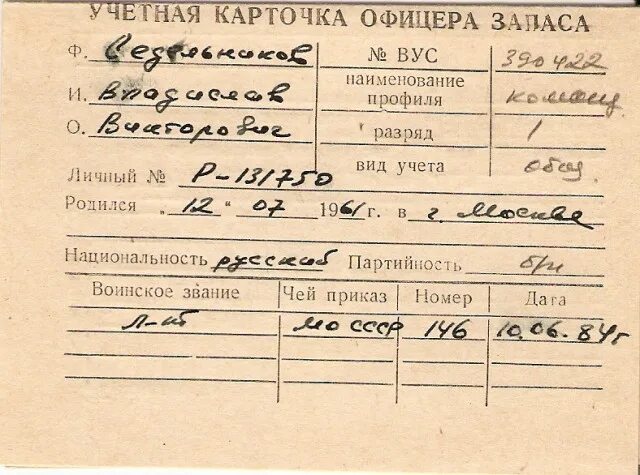 УЧЕТНАЯ КАРТОЧКА ОФИЦЕРА ЗАПАСА
Ф. Седельников № ВУС 390422
И. Владислав наименование профиля команд
О. Викторович разряд 1
Личный № Р-131750 вид учета общ.
Родился „12“ 07 1961 г. в г. Москве
Национальность русский Партийность б/п
Воинское звание Чей приказ Номер Дата
Л-нт МО СССР 146 10.06.84г